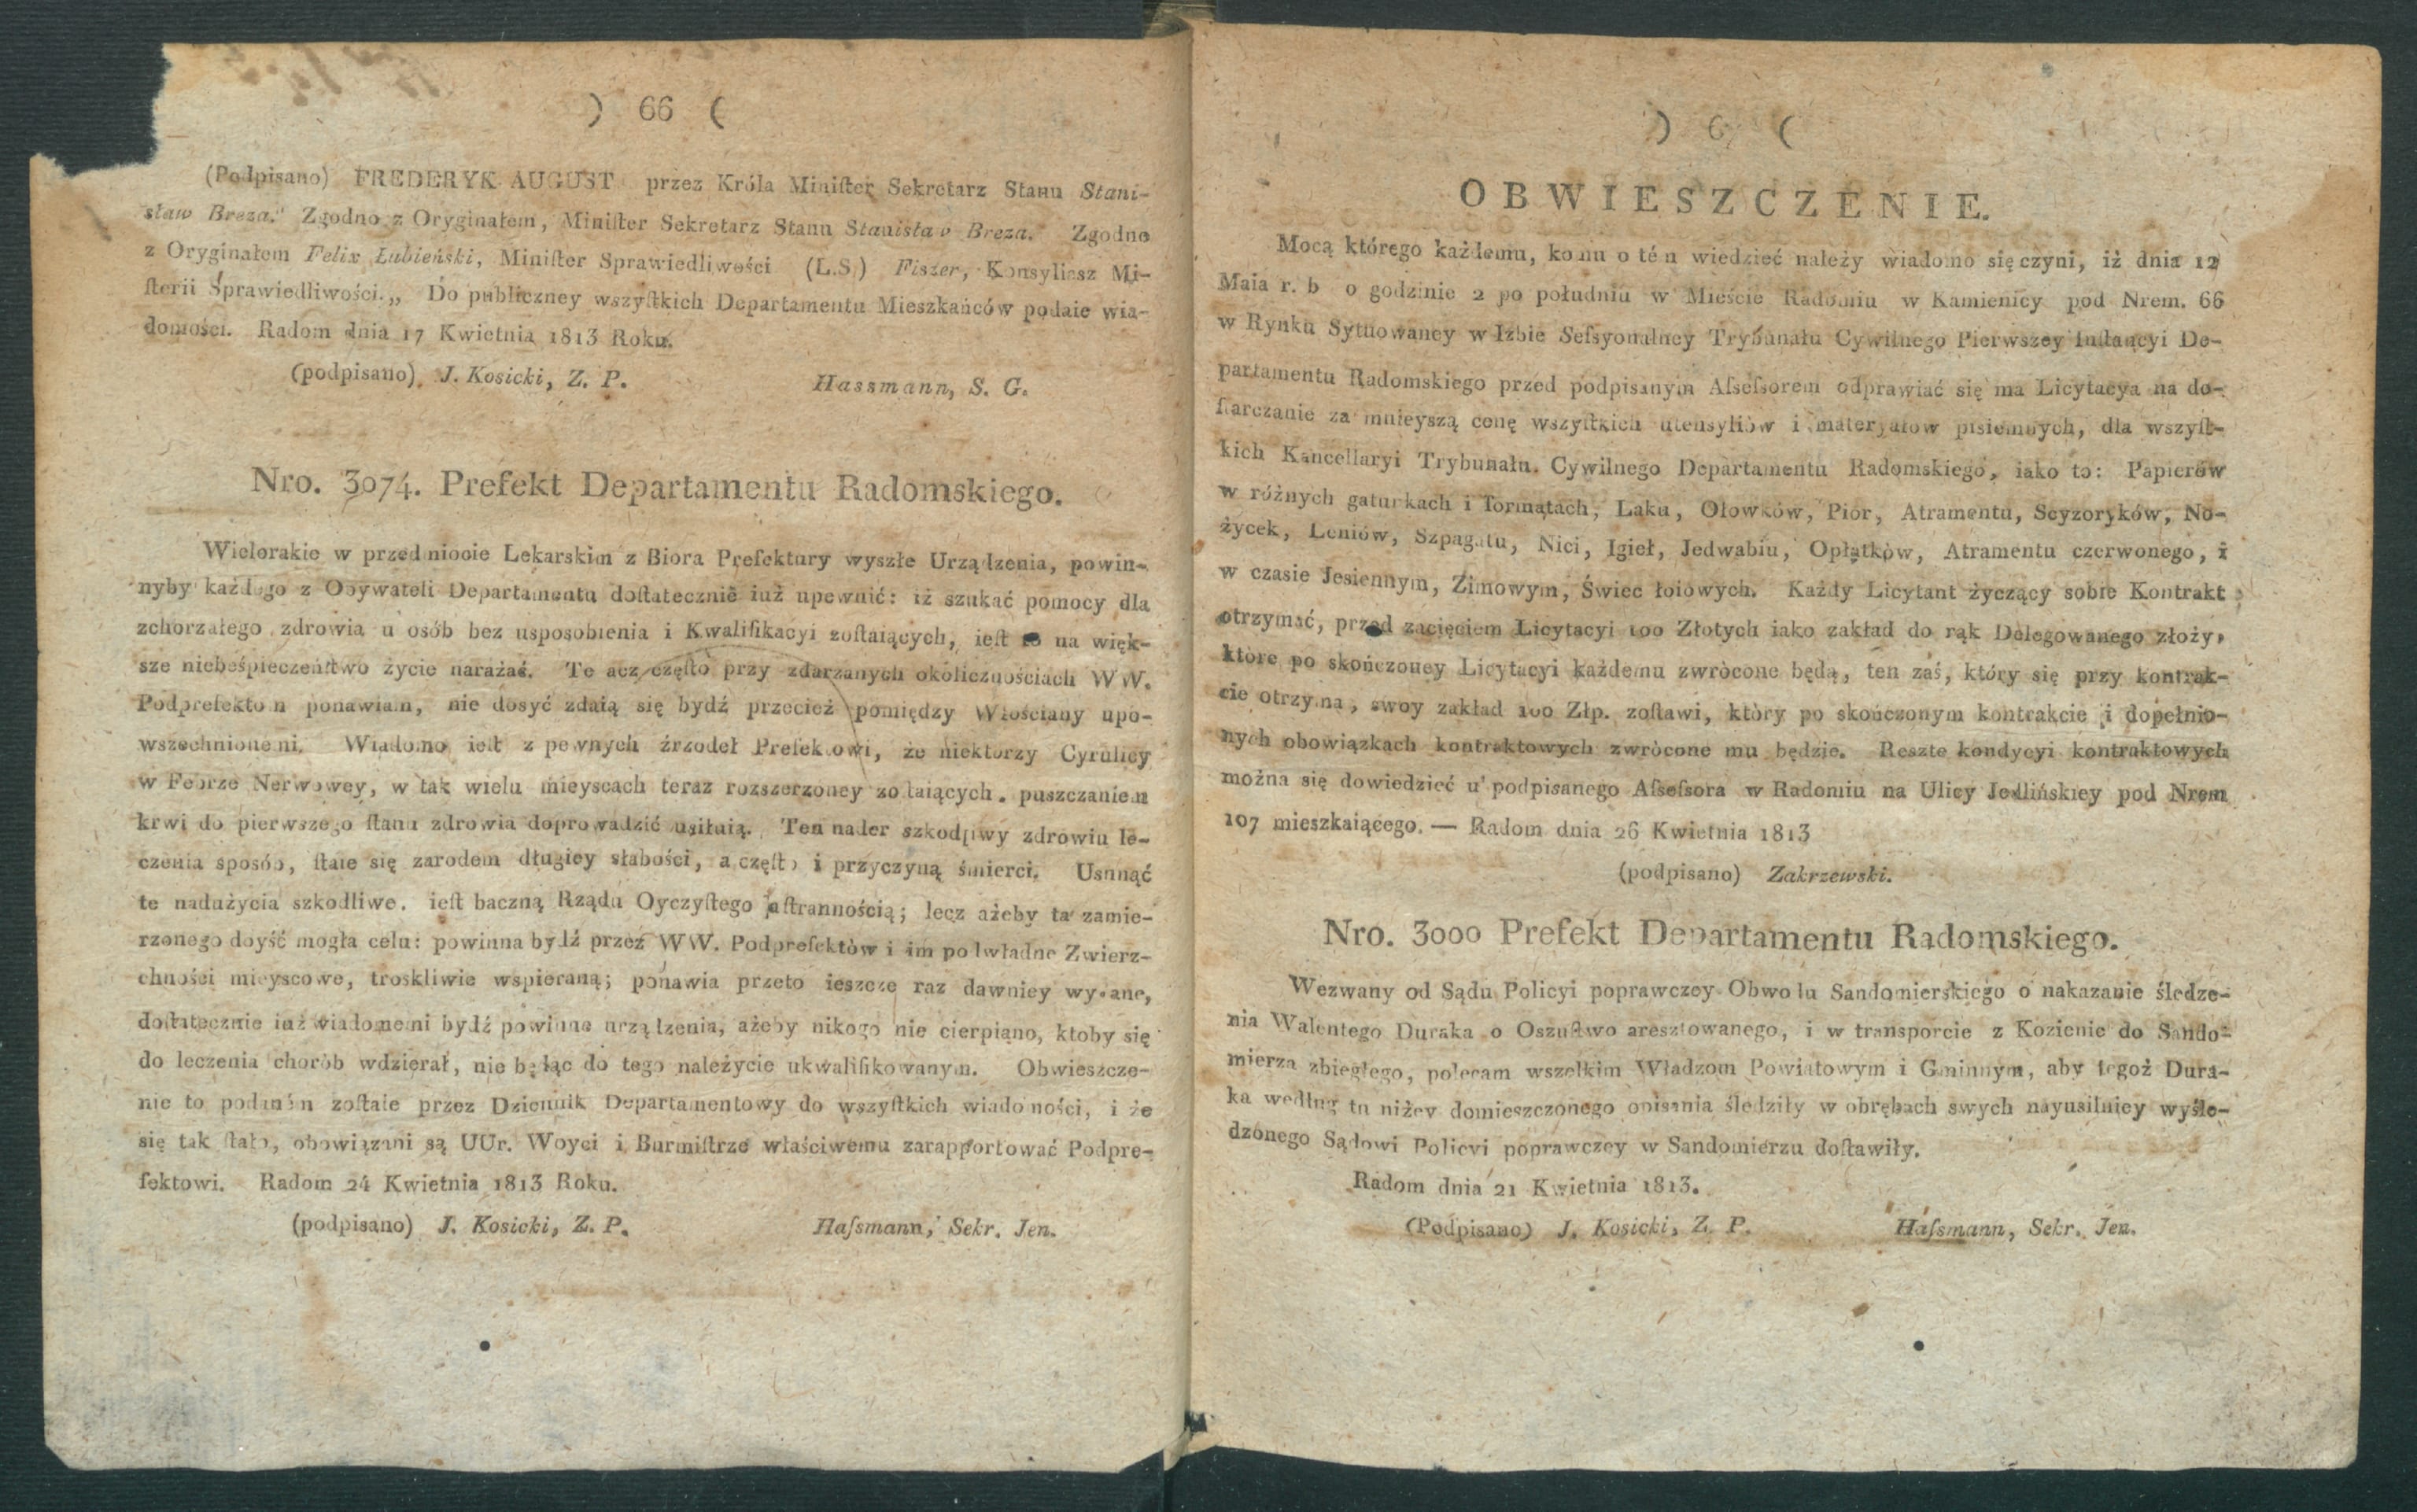 ) 66 (
(Podpisano) FREDERYK AUGUST przez Króla Miniſter Sekretarz Stanu Stani-
sław Breza." Zgodno z Oryginałem, Miniſter Sekretarz Stanu Stanisław Breza. Zgodno
z Oryginałem Felix Łubieński, Miniſter Sprawiedliwości (L.S.) Fiszer, Konsyliasz Mi-
ſterii Sprawiedliwości.„ Do publiczney wszyſtkich Departamentu Mieszkańców podaie wia-
domości. Radom dnia 17 Kwietnia 1813 Roku.
(podpisano) J. Kosicki, Z. P. Hassmann, S. G.
Nro. 3074. Prefekt Departamentu Radomskiego.
Wielorakie w przedmiocie Lekarskim z Biora Prefektury wyszłe Urządzenia, powin-
nyby każdego z Obywateli Departamentu doſtatecznie iuż upewnić: iż szukać pomocy dla
zchorzałego zdrowia u osób bez usposobienia i Kwalifikacyi zoſtaiących, ieſt na więk-
sze niebeśpieczeńſtwo życie narażać. Te acz częſto przy zdarzanych okolicznościach WW.
Podprefektom ponawiam, nie dosyć zdaią się bydź przecież pomiędzy Włościany upo-
wszechnionemi. Wiadomo ieſt z pewnych źrzodeł Prefektowi, że niektorzy Cyrulicy
w Febrze Nerwowey, w tak wielu mieyscach teraz rozszerzoney zoſtaiących, puszczaniem
krwi do pierwszego ſtanu zdrowia doprowadzić usiłuią. Ten nader szkodliwy zdrowiu le-
czenia sposób, ſtaie się zarodem długiey słabości, a częſto i przyczyną śmierci. Usunąć
te nadużycia szkodliwe, ieſt baczną Rządu Oyczyſtego ſtarannością; lecz ażeby ta zamie-
rzonego doyść mogła celu: powinna bydź przez WW. Podprefektów i im podwładne Zwierz-
chności mieyscowe, troskliwie wspieraną; ponawia przeto ieszcze raz dawniey wydane,
doſtatecznie iuż wiadomemi bydź powinne urządzenia, ażeby nikogo nie cierpiano, ktoby się
do leczenia chorób wdzierał, nie będąc do tego należycie ukwalifikowanym. Obwieszcze-
nie to podanem zoſtaie przez Dziennik Departamentowy do wszyſtkich wiadomości, i że
się tak ſtało, obowiązani są UUr. Woyci i Burmiſtrze właściwemu zarapportować Podpre-
fektowi. Radom 24 Kwietnia 1813 Roku.
(podpisano) J. Kosicki, Z. P. Haſsmann, Sekr. Jen.
) 6 (
OBWIESZCZENIE.
Mocą którego każdemu, komu o tém wiedzieć należy wiadomo się czyni, iż dnia 12
Maia r. b o godzinie 2 po południu w Mieście Radomiu w Kamienicy pod Nrem. 66
w Rynku Sytuowaney w Izbie Seſsyonalney Trybunału Cywilnego Pierwszey Inſtancyi De-
partamentu Radomskiego przed podpisanym Aſseſsorem odprawiać się ma Licytacya na do-
ſtarczanie za mnieyszą cenę wszyſtkich utensyliów i materyałow piśiemnych, dla wszyſt-
kich Kancellaryi Trybunału Cywilnego Departamentu Radomskiego, iako to: Papierów
w różnych gatunkach i formatach, Laku, Ołowków, Piór, Atramentu, Scyzoryków, No-
życek, Leniów, Szpagatu, Nici, Igieł, Jedwabiu, Opłatków, Atramentu czerwonego, i
w czasie Jesiennym, Zimowym, Świec łoiowych. Każdy Licytant życzący sobie Kontrakt
otrzymać, przed zacięciem Licytacyi 100 Złotych iako zakład do rąk Delegowanego złoży,
które po skończoney Licytacyi każdemu zwròcone będą, ten zaś, który się przy kontrak-
cie otrzyma, swoy zakład 100 Złp. zoſtawi, który po skończonym kontrakcie i dopełnio-
nych obowiązkach kontraktowych zwròcone mu będzie. Reszte kondycyi kontraktowych
można się dowiedzieć u podpisanego Aſseſsora w Radomiu na Ulicy Jedlińskiey pod Nrem
107 mieszkaiącego. — Radom dnia 26 Kwietnia 1813
(podpisano) Zakrzewski.
Nro. 3000 Prefekt Departamentu Radomskiego.
Wezwany od Sądu Policyi poprawczey Obwodu Sandomierskiego o nakazanie śledze-
nia Walentego Duraka o Oszuſtwo aresztowanego, i w transporcie z Kozienic do Sando-
mierza zbiegłego, polecam wszelkim Władzom Powiatowym i Gminnym, aby tegoż Dura-
ka według tu niżey domieszczonego opisania śledziły w obrębach swych nayusilniey wyśle-
dzonego Sądowi Policyi poprawczey w Sandomierzu doſtawiły.
Radom dnia 21 Kwietnia 1813.
(Podpisano) J. Kosicki, Z. P. Haſsmann, Sekr. Jen.